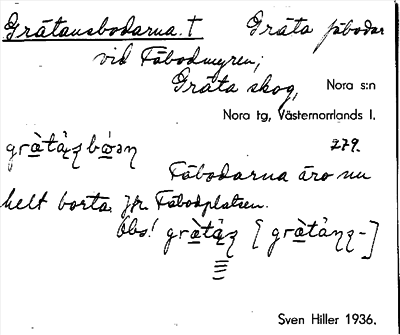 Gråtansbodarna. † Gråta fäbodar
vid Fäbodmyren;
Gråta skog, Nora s:n
Nora tg, Västernorrlands l.
279.
Fäbodarna äro nu
helt borta. Jfr Fäbodplatsen.
Obs!
Sven Hiller 1936.